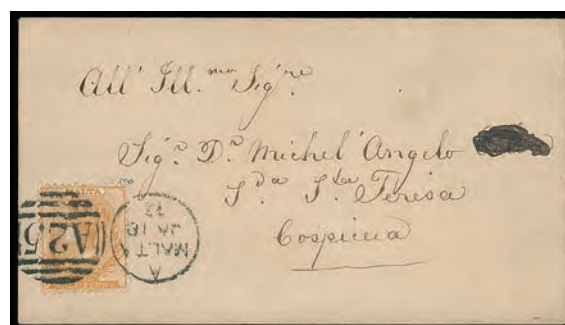 All' Ill.mo Sig.re
Sig.r D.r Michel' Angelo
S.da S.ta Teresa
Cospicua
MALTA
A25
A
MALTA
JA 18